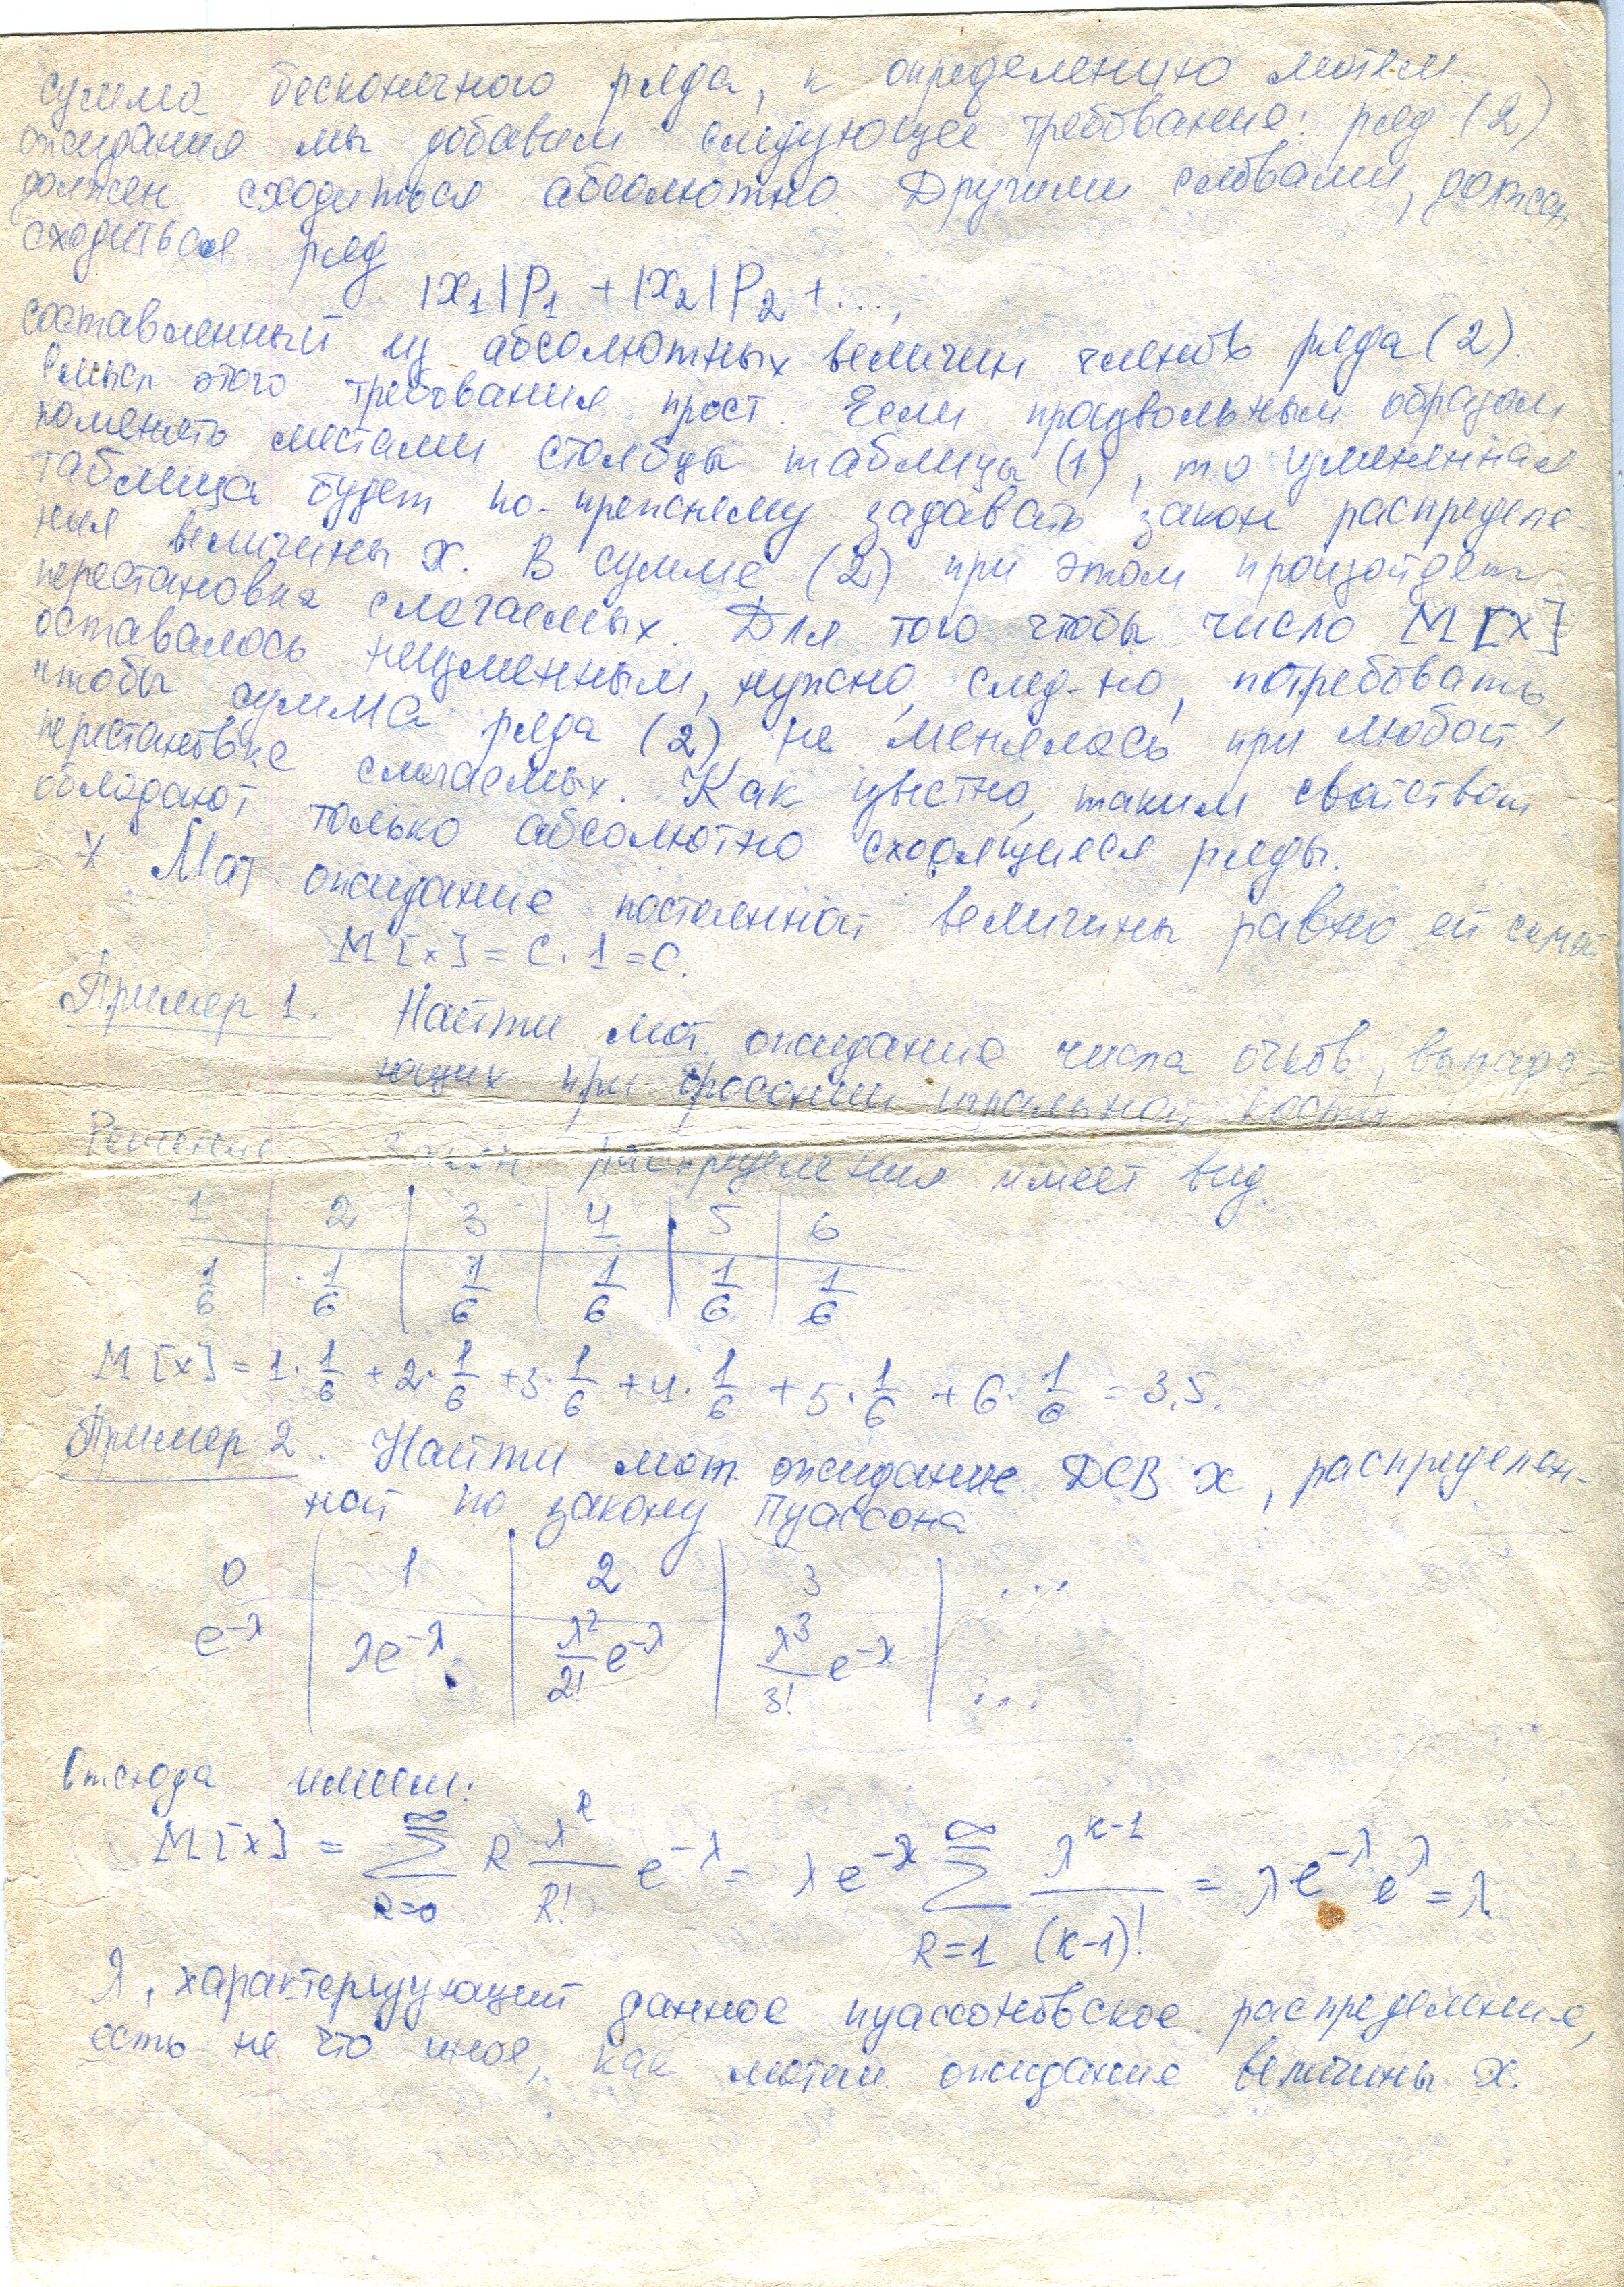 сумма бесконечного ряда, к определению матем.
ожидания мы добавим следующее требование: ряд (2)
должен сходиться абсолютно. Другими словами, должен
сходиться ряд
|x₁|P₁ + |x₂|P₂ + ...,
составленный из абсолютных величин членов ряда (2).
Смысл этого требования прост. Если произвольным образом
поменять местами столбцы таблицы (1), то измененная
таблица будет по-прежнему задавать закон распределе-
ния величины X. В сумме (2) при этом произойдет
перестановка слагаемых. Для того чтобы число M[X]
оставалось неизменным, нужно, след-но, потребовать,
чтобы сумма ряда (2) не менялась при любой
перестановке слагаемых. Как известно, таким свойством
обладают только абсолютно сходящиеся ряды.
x Мат ожидание постоянной величины равно ей самой
M[x] = C · 1 = C.
Пример 1. Найти мат. ожидание числа очков, выпада-
ющих при бросании игральной кости
Решение Закон распределения имеет вид.
1 | 2 | 3 | 4 | 5 | 6
1/6 | 1/6 | 1/6 | 1/6 | 1/6 | 1/6
M[x] = 1·1/6 + 2·1/6 + 3·1/6 + 4·1/6 + 5·1/6 + 6·1/6 = 3,5.
Пример 2. Найти мат. ожидание ДСВ X, распределен-
ной по закону Пуассона
0 | 1 | 2 | 3 | ...
e^-λ | λe^-λ | λ²/2! e^-λ | λ³/3! e^-λ | ...
Отсюда имеем:
M[x] = ∑_{k=0}^∞ k λ^k/k! e^-λ = λe^-λ ∑_{k=1}^∞ λ^{k-1}/(k-1)! = λe^-λ e^λ = λ.
λ, характеризующий данное пуассоновское распределение,
есть не что иное, как матем. ожидание величины X.